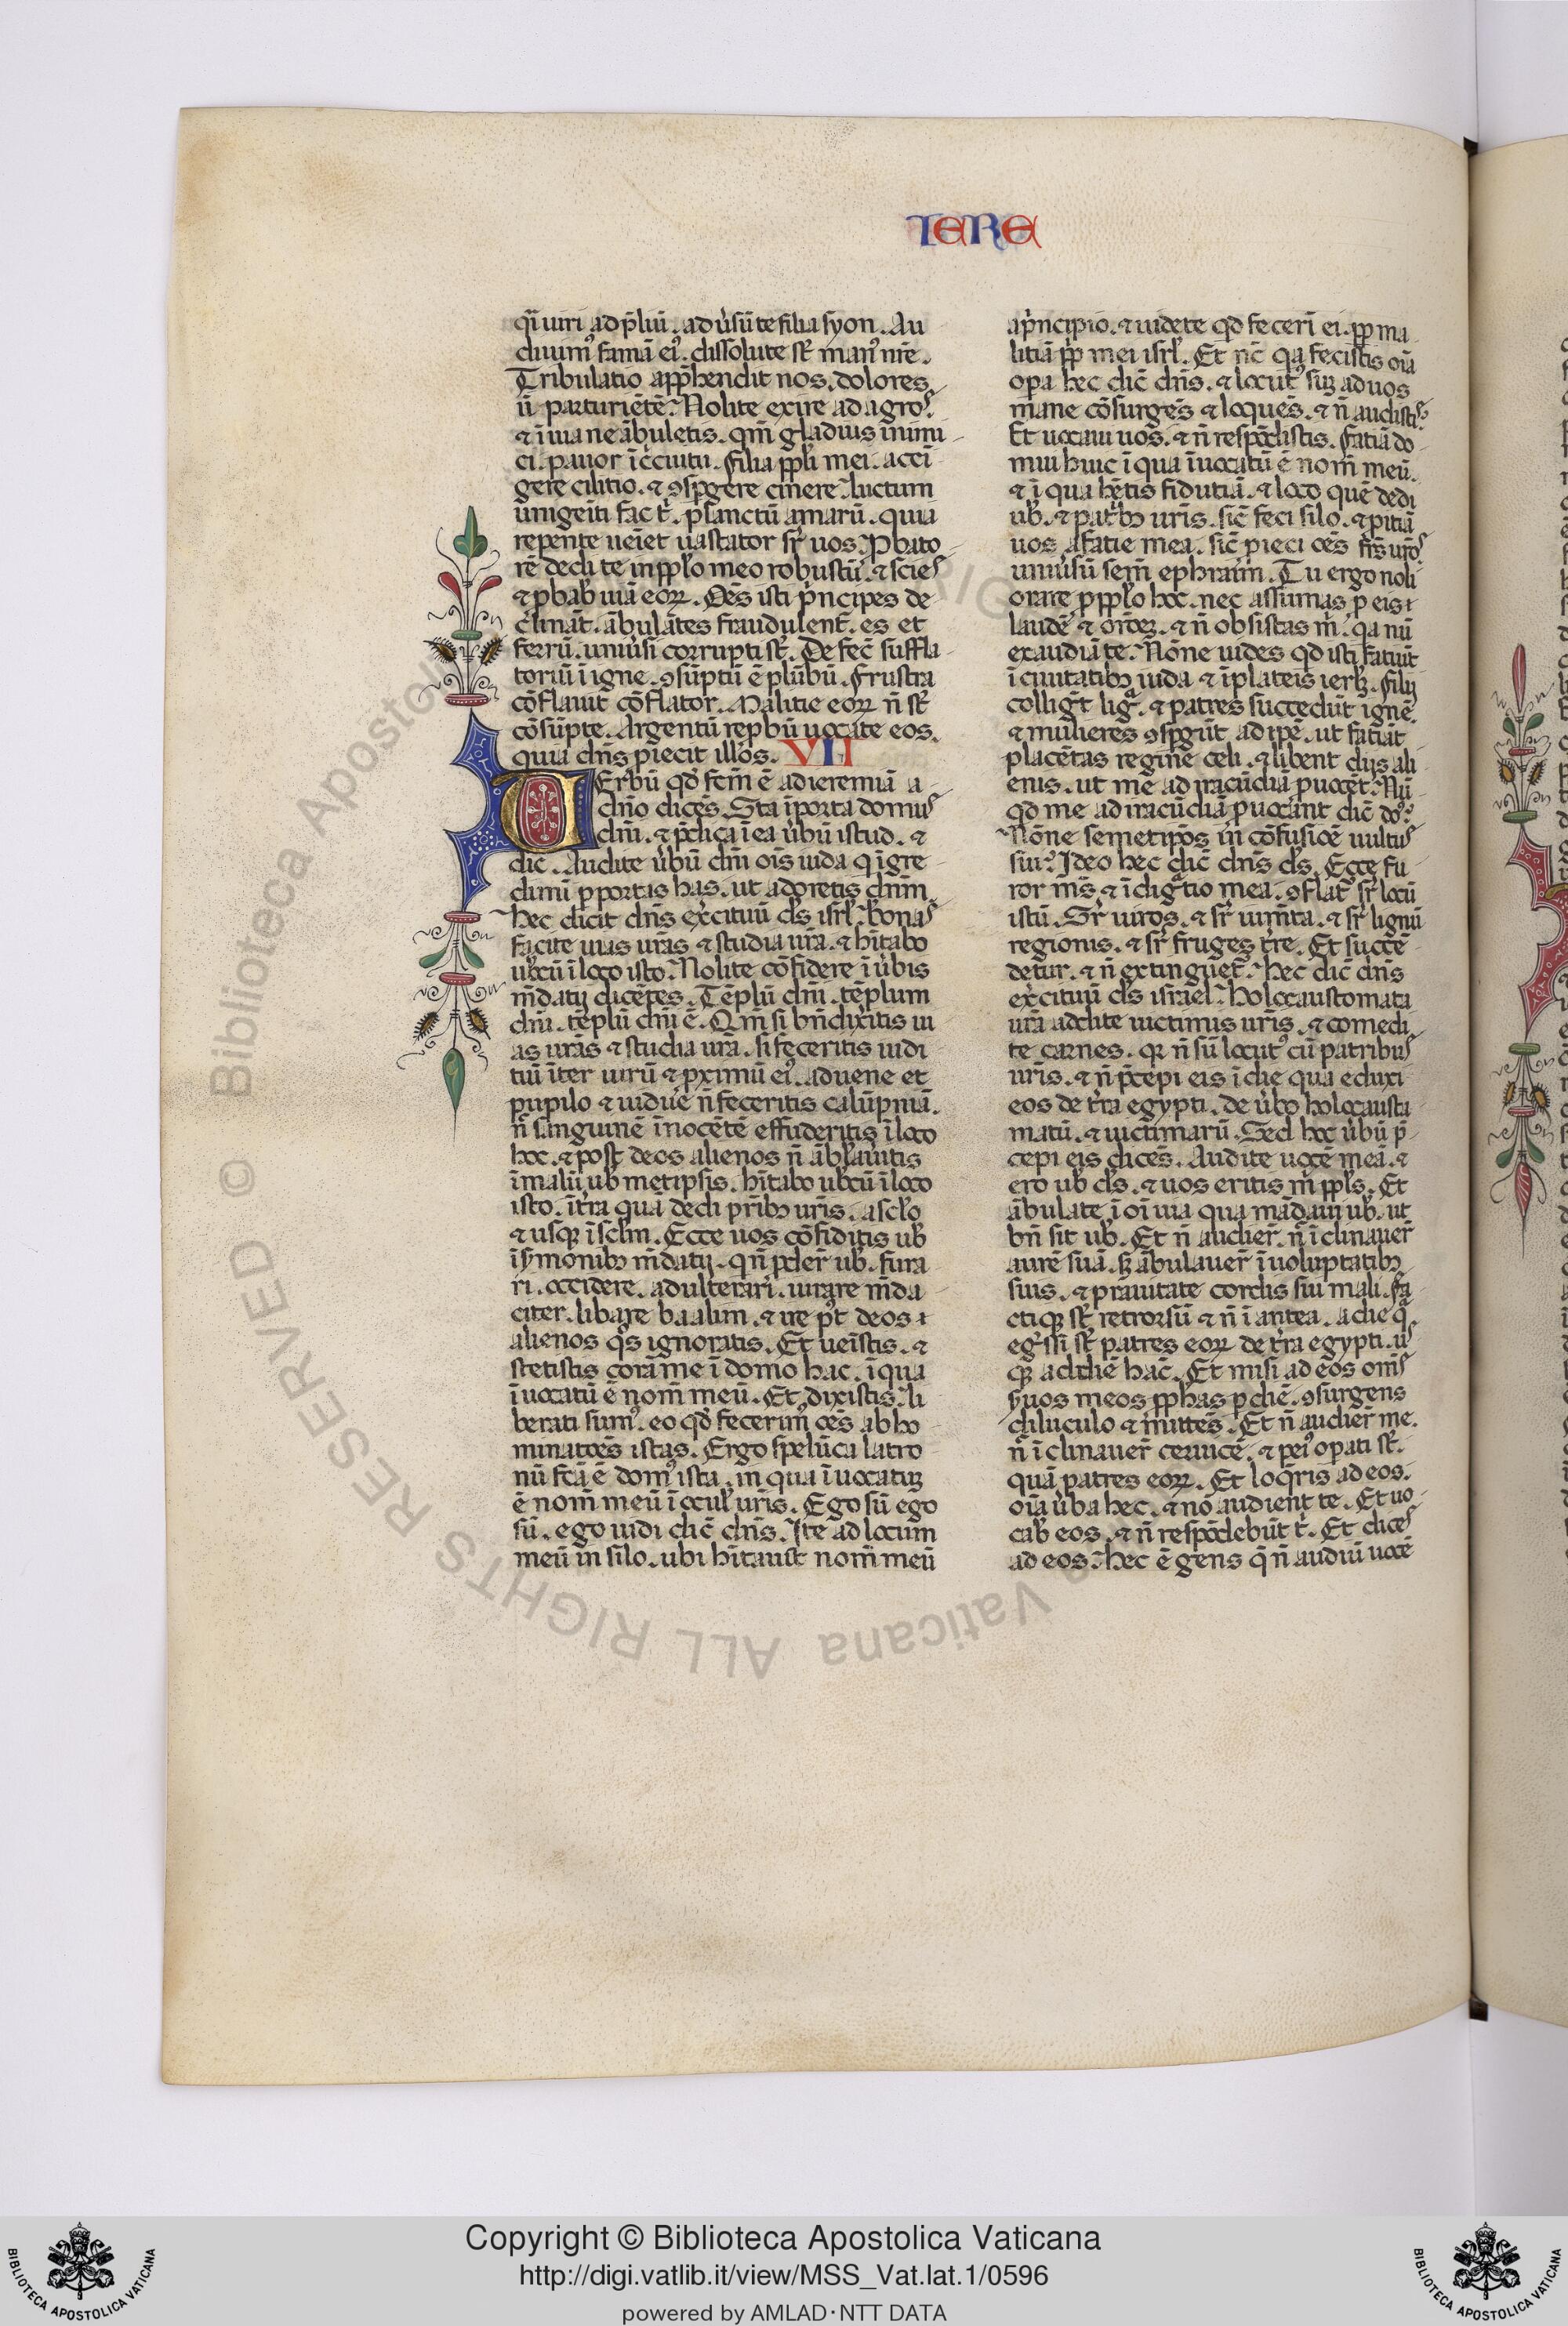 IERE
qi uiri ad p̄liū. ad ùsū te filia syon. Au
diuim⁹ famā ei⁹. dissolute st̄ man⁹ nr̄e.
Tribulatio app̄hendit nos. dolores
ū parturiētē. Nolite exire ad agros.
⁊ ī uia ne ābuletis. qm̄ gladius inimi
ci. pauor ī c̀cuitu. filia ppl̄i mei. accī
gere cilitio. ⁊ ꝯsp̄gere cinere. luctum
unigeīti fac t̄. planctū amarū. quia
repente ueīet uastator sr̄ uos. Pbato
rē dedi te in ppl̄o meo robustū. ⁊ scies
⁊ pbab̄ uiā eoꝝ. Oēs isti p̀ncipes de
clināt. ābulātes fraudulent̄. es et
ferrū. uniùsi corrupti st̄. Defec̄ suffla
toriū ī igne. ꝯsūptū ē plūbū. frustra
cōflauit cōflator. Malitie eoꝝ n̄ st̄
cōsūpte. Argentū repbū uocate eos.
quia dn̄s piecit illos. VII
VErbū qd̄ fcm̄ ē ad ieremiā a
dn̄o dicēs. Sta ī porta domus
dn̄i. ⁊ p̄dica ī ea ùbū istud. ⁊
dic̄. Audite ùbū dn̄i oīs iuda q ī gre
dimī p portas has. ut adoretis dn̄m.
hec dicit dn̄s exc̀ituū ds̄ isrl̄. bonas
facite uias ur̄as ⁊ studia ur̄a. ⁊ hītabo
uob̄cū ī loco isto. Nolite cōfidere ī ùbis
m̄datij dicētes. Tēplū dn̄i. tēplum
dn̄i. tēplū dn̄i ē. Qm̄ si bn̄dix̀itis ui
as ur̄as ⁊ studia ur̄a. si feceritis iudi
tiū īter uirū ⁊ pximū ei⁹. aduene et
pupilo ⁊ uidue n̄ feceritis calūpniā.
n̄ sanguinē inocētē effuderitis ī loco
hoc. ⁊ post deos alienos n̄ ābl̄auitis
ī malū ub̄ metipsis. hītabo uob̄cū ī loco
isto. ī tr̄a quā dedi pr̄ibꝫ ur̄is. a scl̄o
⁊ usqꝫ ī scl̄m. Ecce uos cōfiditis ub̄
ī s̀monibꝫ m̄datij. q n̄ pd̄er̄ ub̄. fura
ri. occidere. adulterari. iurare m̄da
citer. libare baalim. ⁊ ire p̄t deos
alienos qs̀ ignoratis. Et ueīstis. ⁊
stetistis corā me ī domo hac. ī qua
īuocatū ē nom̄ meū. Et dixistis. li
berati sum⁹. eo qd̄ fecerim⁹ oēs abho
minatōēs istas. Ergo spelūca latro
nū fcā ē dom⁹ ista. in qua īuocatuꝫ
ē nom̄ meū ī ocul̄ ur̄is. Ego sū ego
sū. ego uidi dic̄ dn̄s. Ite ad locum
meū in silo. ubi hītauit nom̄ meū
a p̀ncipio. ⁊ uidete qd̄ fecerī ei. pp̄ ma
litiā pp̄l mei isrl̄. Et nc̄ qa fecistis oīa
opa hec dic̄ dn̄s. ⁊ locut⁹ suꝫ ad uos
mane cōsurgēs ⁊ loquēs. ⁊ n̄ audistis.
Et uocaui uos. ⁊ n̄ respōdistis. fatiā do
mui huic ī qua īuocatū ē nom̄ meū.
⁊ ī qua hētis fidutiā. ⁊ loco quē dedi
ub̄. ⁊ patribꝫ ur̄is. sic̄ feci silo. ⁊ pitiā
uos a fatie mea. sic̄ pieci oēs fr̄s ur̄os
uniùsū sem̄ ephraim. Tu ergo noli
orare p ppl̄o hoc. nec assumas p eis
laudē ⁊ or̄oēꝫ. ⁊ n̄ obsistas m̄. qa nū
exaudiā te. Nōne uides qd̄ isti fatiūt
ī ciuitatibꝫ iuda ⁊ ī plateis ierl̄ꝫ. filij
colligt̄ liḡ. ⁊ patres succedūt ignē.
⁊ mulieres ꝯsp̄gūt adipē. ut fatiāt
placētas regine celi. ⁊ libent dijs ali
enis. ut me ad iracūdiā puocēt. Nū
qd̄ me ad iracūdiā puocant dic̄ do⁹.
Nōne semetipos in cōfusiōē uultus
sui. Ideo hec dic̄ dn̄s ds̄. Ecce fu
ror m̄s ⁊ īdig̀tio mea. ꝯflat̄ sr̄ locū
istū. Sr̄ uiros. ⁊ sr̄ iumēta. ⁊ sr̄ lignū
regionis. ⁊ sr̄ fruges tr̄e. Et succē
detur. ⁊ n̄ extinguet̄. hec dic̄ dn̄s
exc̀ituū ds̄ israel. Holocaustomata
ur̄a addite uictimis ur̄is. ⁊ comedi
te carnes. qꝛ n̄ sū locut⁹ cū patribus
ur̄is. ⁊ n̄ p̄cepi eis ī die qua eduxi
eos de tr̄a egypti. de ùbo holocausto
matū. ⁊ uictimarū. Sed hoc ùbū p̄
cepi eis dicēs. Audite uocē meā. ⁊
ero ub̄ ds̄. ⁊ uos eritis m̄ ppl̄s. Et
ābulate ī oī uia qua mādaui ub̄. ut
bn̄ sit ub̄. Et n̄ audier̄. n̄ īclinauer̄
aurē suā. sꝫ ābulauer̄ ī uoluptatibꝫ
suis. ⁊ prauitate cordis sui mali. fa
ctiqꝫ st̄ retrorsū ⁊ n̄ ī antea. a die q̄
eg̀ssi st̄ patres eoꝝ de tr̄a egypti. us
qꝫ ad diē hāc. Et misi ad eos om̄s
s̀uos meos pphas p diē. ꝯsurgens
diluculo ⁊ mittēs. Et n̄ audier̄ me.
n̄ īclinauer̄ ceruicē. ⁊ pei⁹ opati st̄.
quā patres eoꝝ. Et loq̄ris ad eos.
oīa ùba hec. ⁊ nō audient te. Et uo
cab̄ eos. ⁊ n̄ respōdebūt t̄. Et dices
ad eos. hec ē gens q̄ n̄ audiuī uocē
© Biblioteca Apostolica Vaticana ALL RIGHTS RESERVED
Copyright © Biblioteca Apostolica Vaticana
http://digi.vatlib.it/view/MSS_Vat.lat.1/0596
powered by AMLAD·NTT DATA
BIBLIOTECA APOSTOLICA VATICANA
BIBLIOTECA APOSTOLICA VATICANA